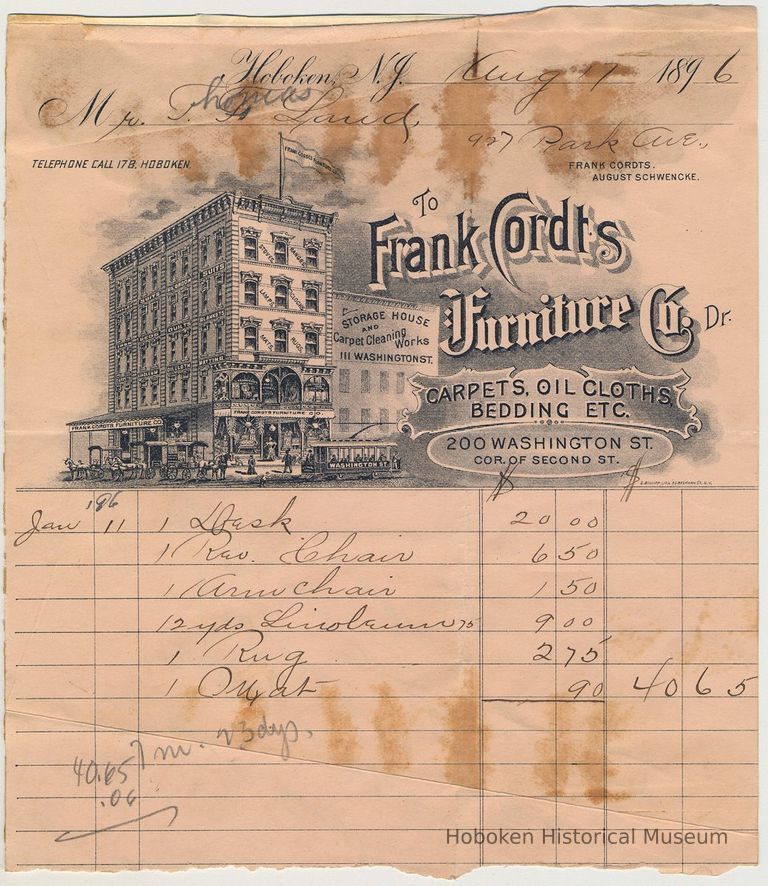 Hoboken, N.J. Aug 17 1896
Thomas
Mr. T. F. Laud,
927 Park Ave.,
TELEPHONE CALL 178, HOBOKEN.
FRANK CORDTS.
AUGUST SCHWENCKE.
FRANK CORDTS FURNITURE CO
To
Frank Cordts
Furniture Co. Dr.
STOVES RANGES
LAMPS CLOCKS
MATS RUGS
STORAGE HOUSE
AND
Carpet Cleaning
Works
111 WASHINGTON ST.
CARPETS, OIL CLOTHS,
BEDDING ETC.
FRANK CORDTS FURNITURE CO.
FRANK CORDTS FURNITURE CO
WASHINGTON ST.
200 WASHINGTON ST.
COR. OF SECOND ST.
$ $
'96
Jan 11 1 Desk 20 00
1 Rev. Chair 6 50
1 Armchair 1 50
12 yds Linoleum 75 9 00
1 Rug 2 75
1 Mat 90 40 65
7 m. 23 dys.
40.65
.06
Hoboken Historical Museum